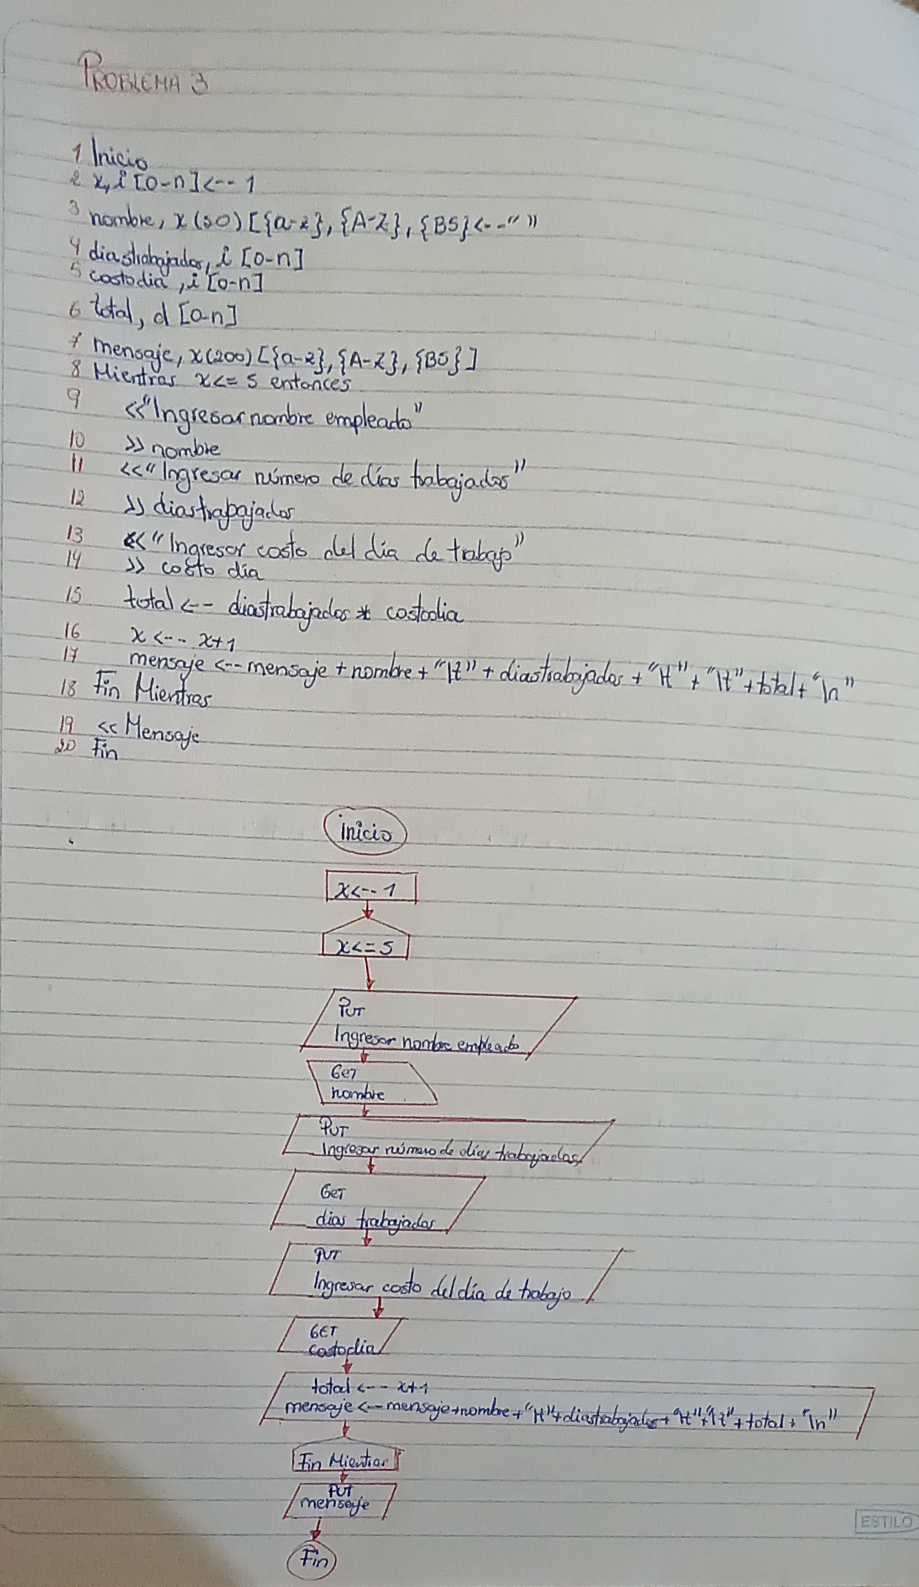 PROBLEMA 3
1 Inicio
2 x, i [0-n] <-- 1
3 nombre, x (50) [{a-z}, {A-Z}, {BS} <-- " "
4 diastrabajados, i [0-n]
5 costodia, i [0-n]
6 total, d [0-n]
7 mensaje, x(200) [{a-z}, {A-Z}, {BS}]
8 Mientras x <= 5 entonces
9 <<"Ingresar nombre empleado"
10 >> nombre
11 <<"Ingresar número de días trabajados"
12 >> diastrabajados
13 <<"Ingresar costo del día de trabajo"
14 >> costo dia
15 total <-- diastrabajados * costodia
16 x <-- x+1
17 mensaje <-- mensaje + nombre + "\t" + diastrabajados + "\t" + "\t" + total + "\n"
18 Fin Mientras
19 << Mensaje
20 Fin
inicio
x <-- 1
x <= 5
PUT
Ingresar nombre empleado
GET
nombre
PUT
Ingresar número de dias trabajados
GET
dias trabajados
PUT
Ingresar costo del dia de trabajo
GET
costodia
total <-- x+1
mensaje <-- mensaje+nombre+"\t"+diastrabajados+"\t"+"\t"+total+"\n"
Fin Mientras
PUT
mensaje
Fin
ESTILO